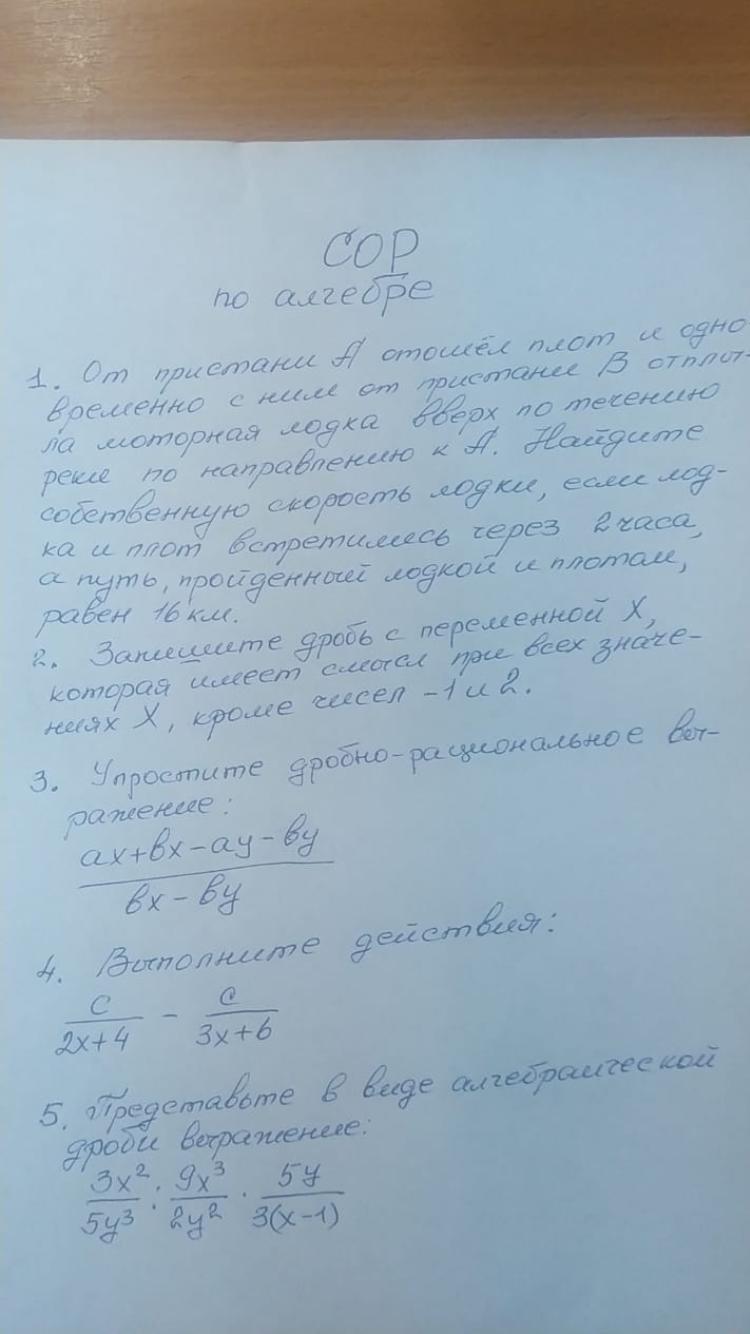 СОР
по алгебре
1. От пристани А отошёл плот и одно-
временно с ним от пристани В отплы-
ла моторная лодка вверх по течению
реки по направлению к А. Найдите
собственную скорость лодки, если лод-
ка и плот встретились через 2 часа,
а путь, пройденный лодкой и плотом,
равен 16 км.
2. Запишите дробь с переменной X,
которая имеет смысл при всех значе-
ниях X, кроме чисел -1 и 2.
3. Упростите дробно-рациональное вы-
ражение:
ax+bx-ay-by
bx-by
4. Выполните действия:
c/(2x+4) - c/(3x+6)
5. Представьте в виде алгебраической
дроби выражение:
3x²/5y³ : 9x³/2y² · 5y/3(x-1)